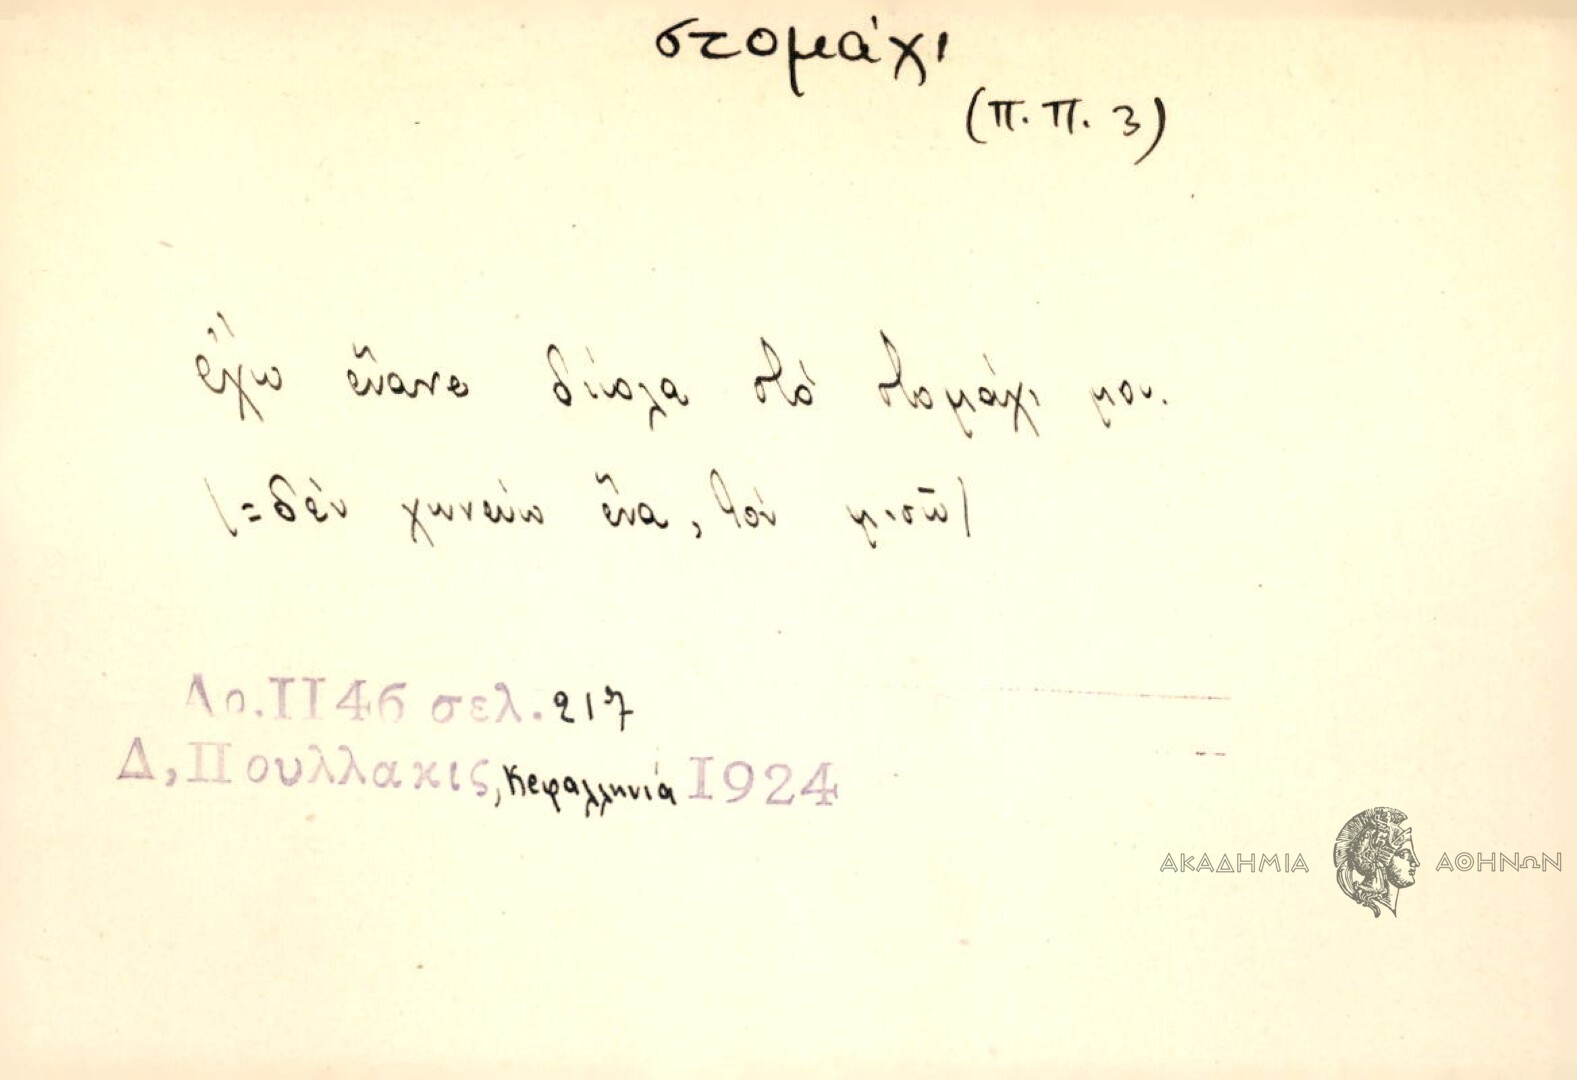 στομάχι
(π.π. 3)
ἔχω ἕνανε δίπλα στό στομάχι μου.
(=δέν χωνεύω ἕνα, τόν μισῶ)
Αρ.1146 σελ. 217
Δ, Πουλλακις, Κεφαλληνιά 1924
ΑΚΑΔΗΜΙΑ ΑΘΗΝΩΝ